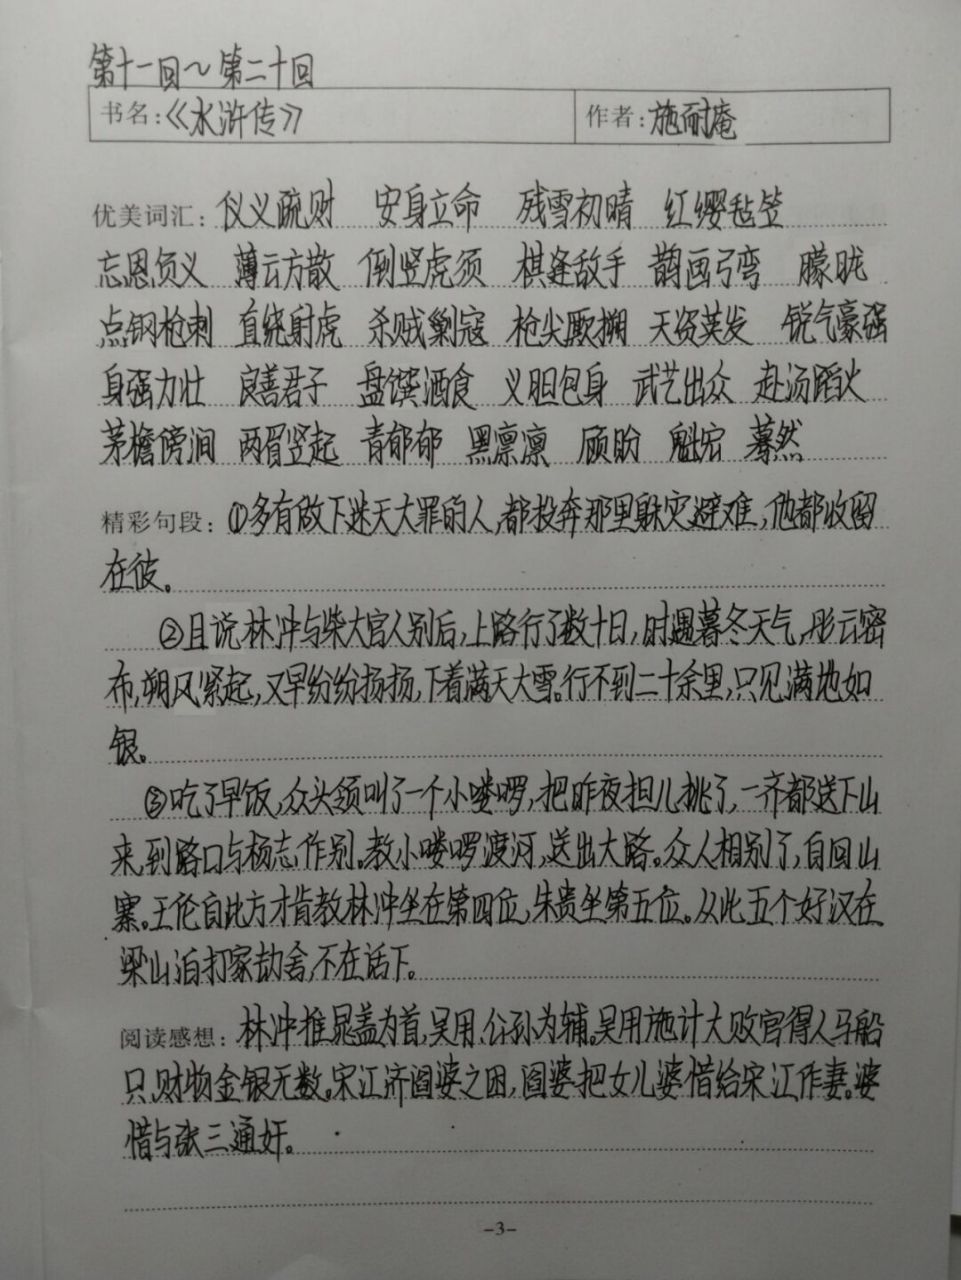 第十一回~第二十回
书名:《水浒传》 作者:施耐庵
优美词汇:仪义疏财 安身立命 残雪初晴 红缨毡笠
忘恩负义 薄云方散 倒竖虎须 棋逢敌手 鹊画弓弯 朦胧
点钢枪刺 直绕射虎 杀贼剿寇 枪尖厮搠 天资英发 锐气豪强
身强力壮 良善君子 盘馔酒食 义胆包身 武艺出众 赴汤蹈火
茅檐傍涧 两眉竖起 青郁郁 黑凛凛 顾盼 魁宏 蓦然
精彩句段:①多有做下迷天大罪的人,都投奔那里躲灾避难,他都收留
在彼。
②且说林冲与柴大官人别后,上路行了数十日,时遇暮冬天气,彤云密
布,朔风紧起,又早纷纷扬扬,下着满天大雪。行不到二十余里,只见满地如
银。
③吃了早饭,众头领叫了一个小喽啰,把昨夜担儿挑了,一齐都送下山
来,到路口与杨志作别。教小喽啰渡河,送出大路。众人相别了,自回山
寨。王伦自此方才肯教林冲坐在第四位,朱贵坐第五位。从此五个好汉在
梁山泊打家劫舍,不在话下。
阅读感想:林冲推晁盖为首,吴用、公孙为辅。吴用施计大败官得人马船
只,财物金银无数。宋江济阎婆之困,阎婆把女儿婆惜给宋江作妻。婆
惜与张三通奸。
-3-